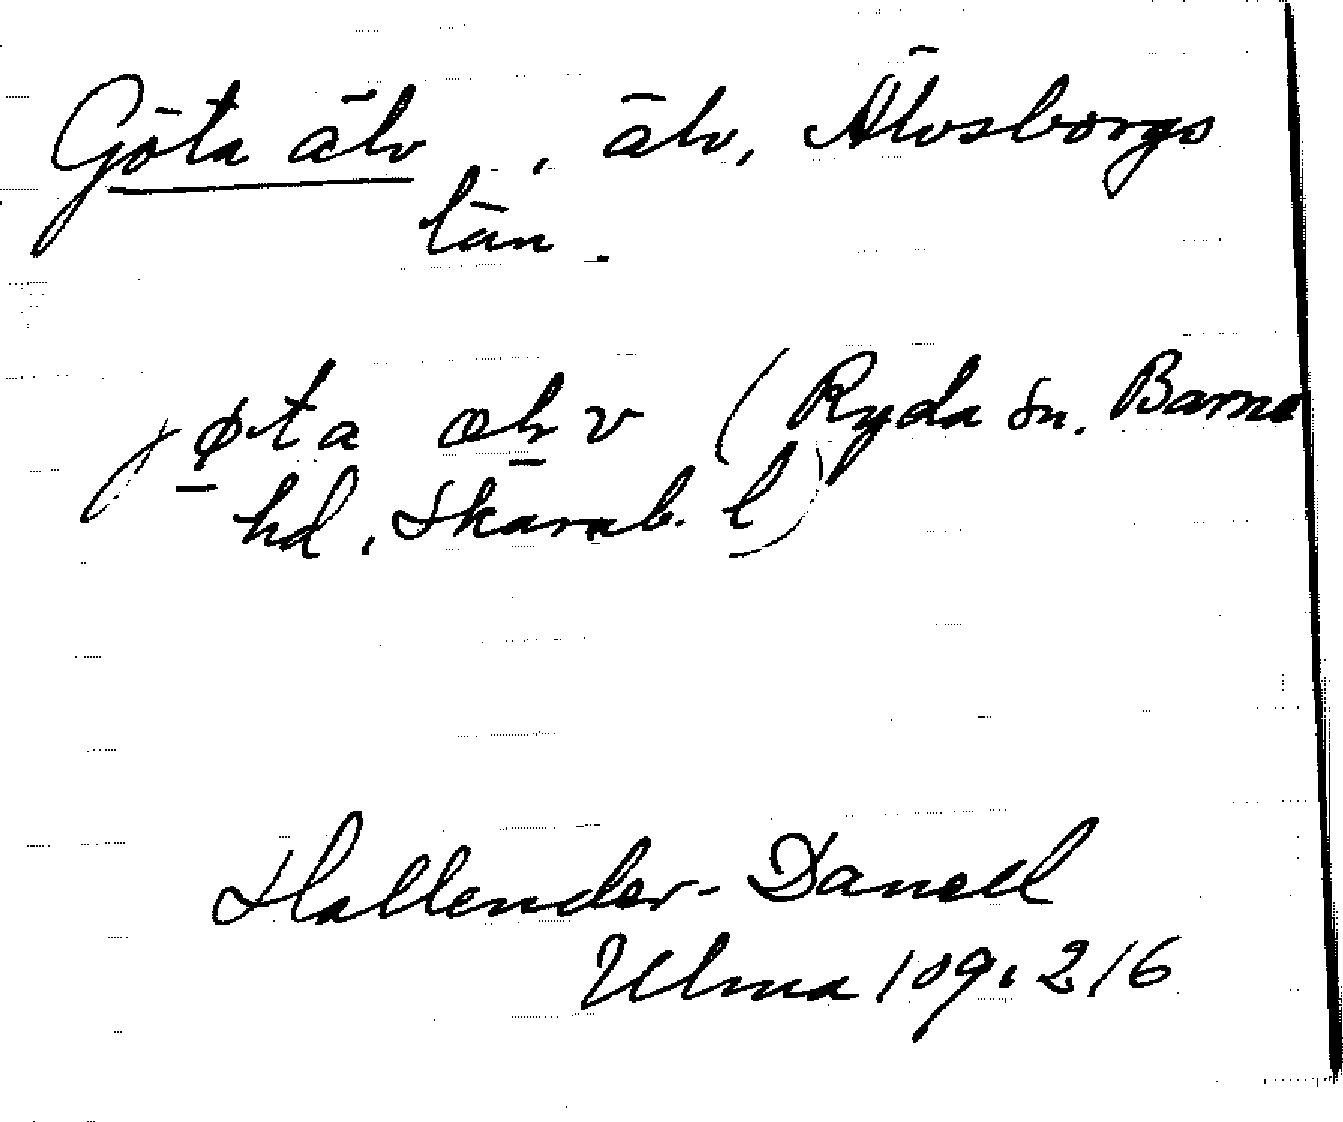 Göta älv, älv, Älvsborgs
län.
jøta ælv (Ryda sn. Barne
hd, Skarab. l)
Hallender-Danell
Ulma 109:216